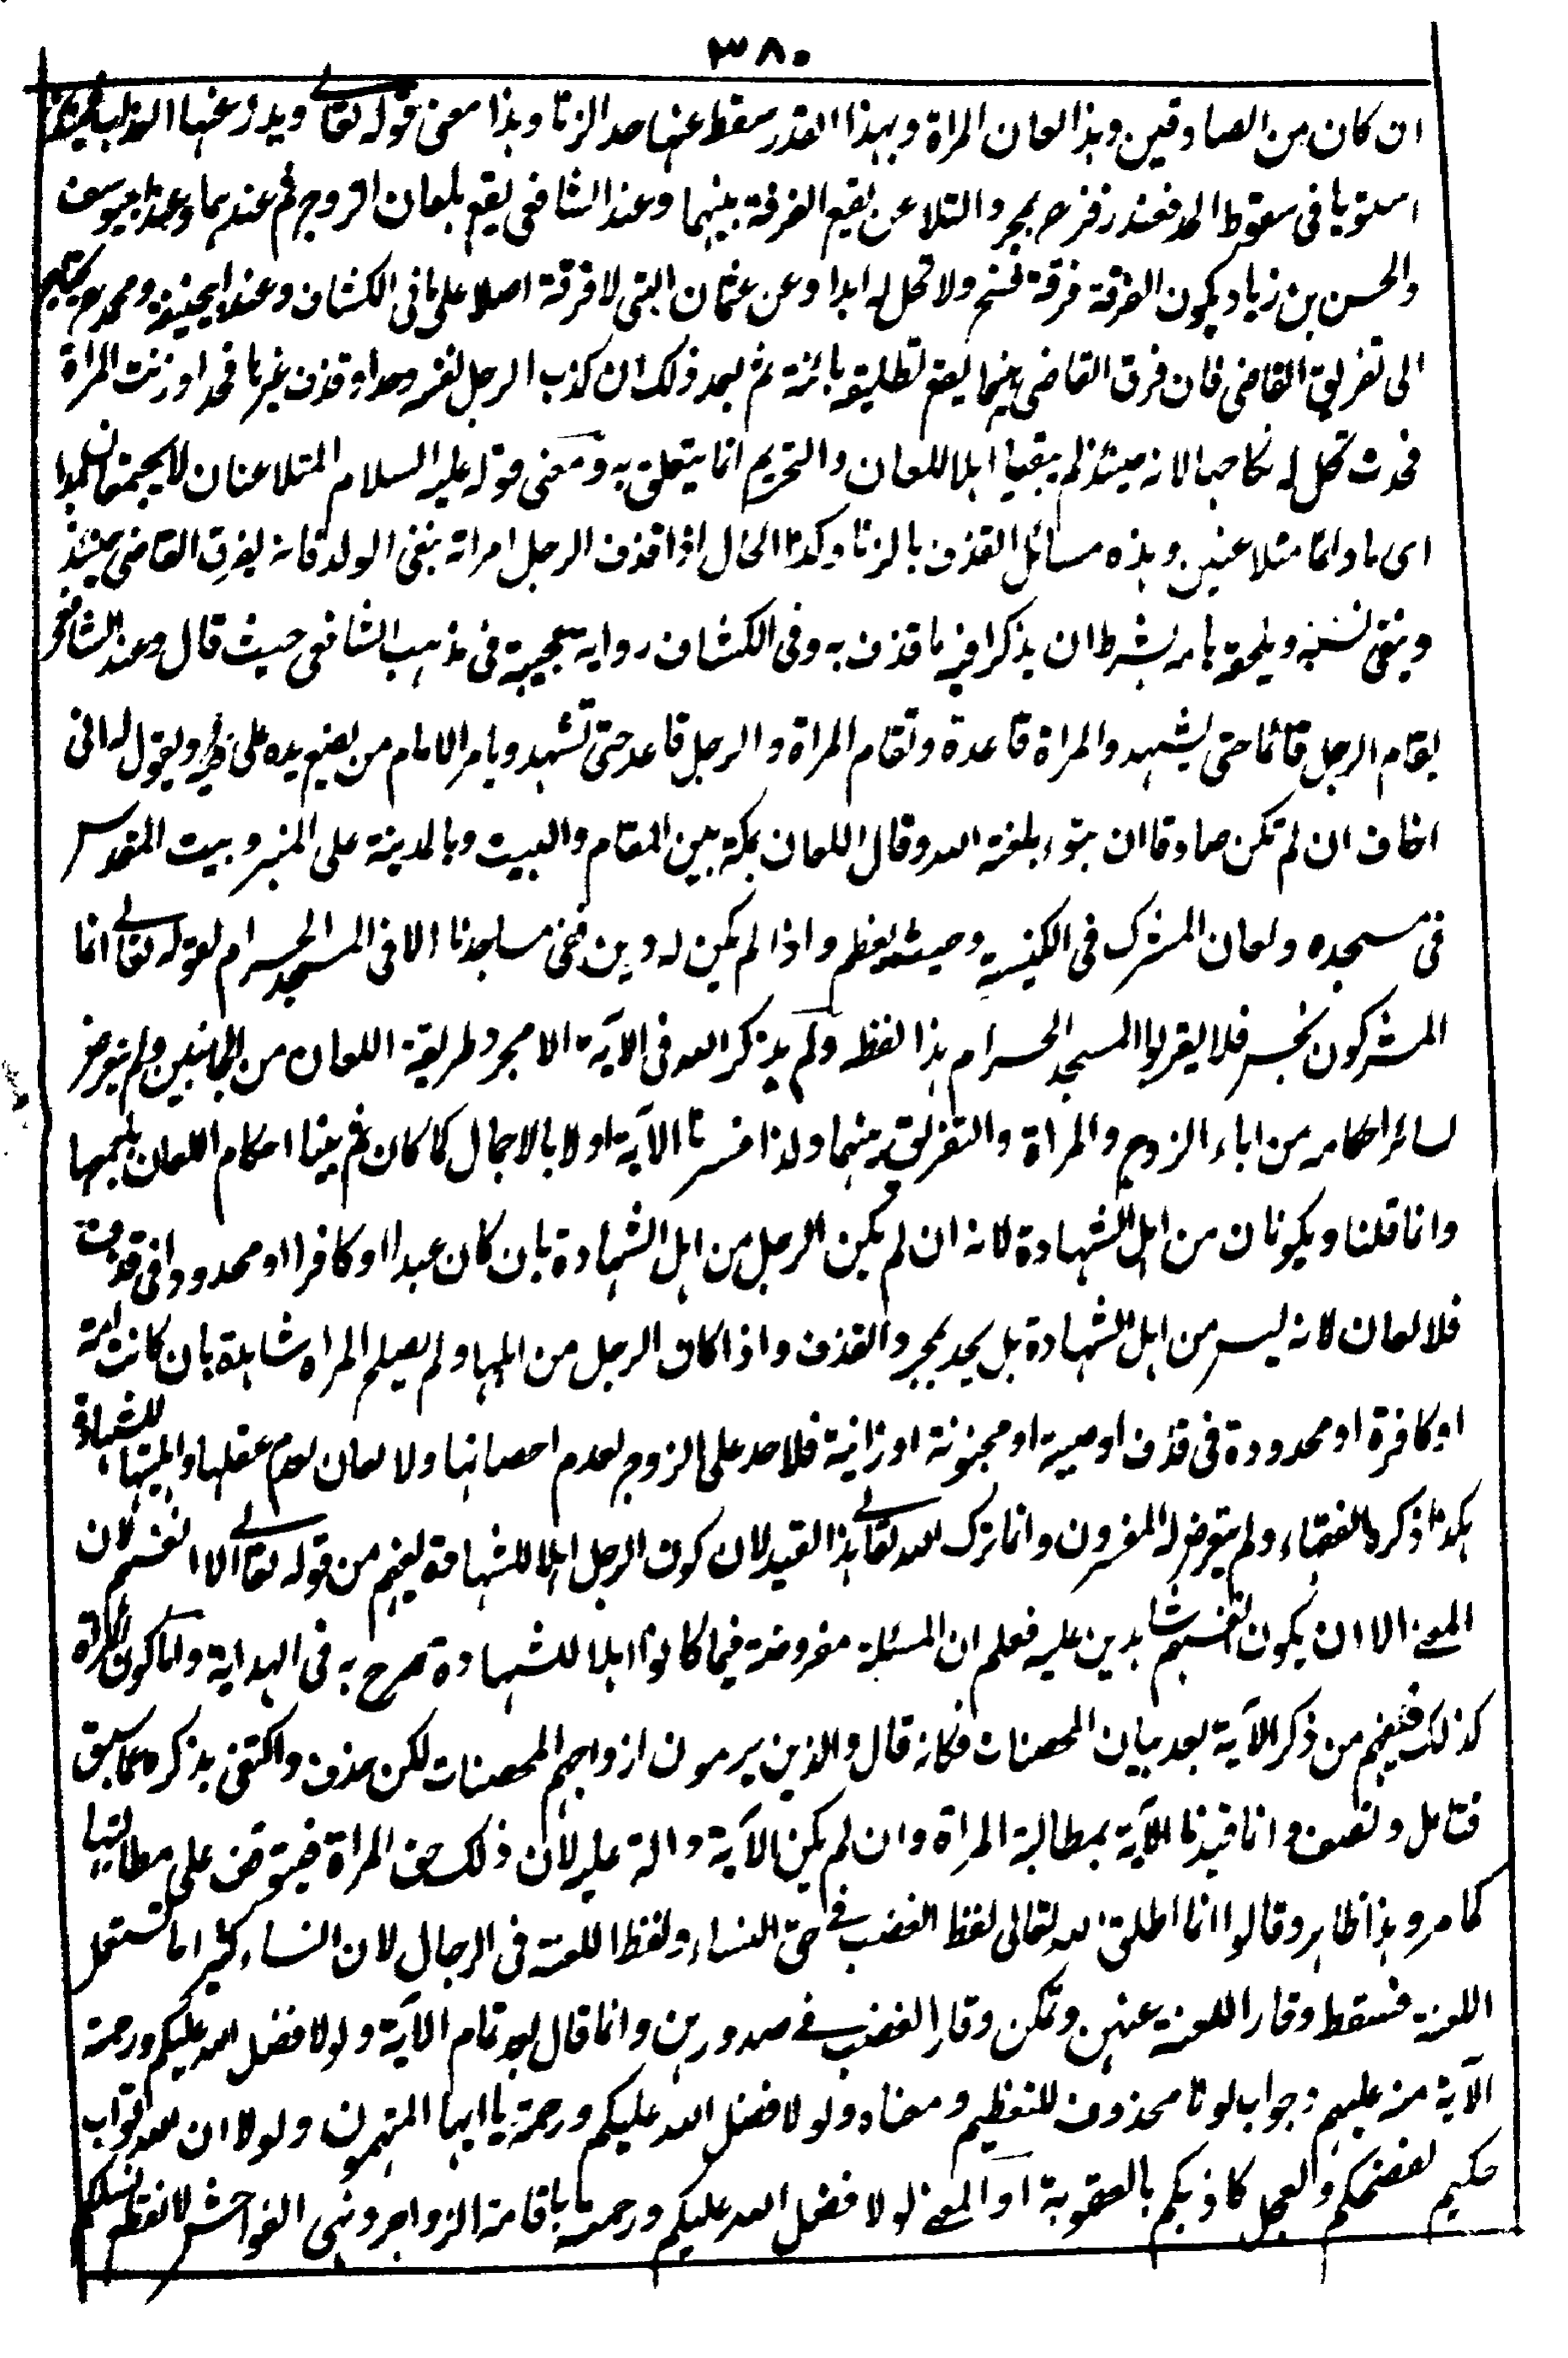 ٣٨٠
ان كان من الصادقين وهذا لعان المراة وبهذا القدر سقط عنها حد الزنا وهذا معنى قوله تعالى ويدرؤ عنها العذاب
استويا فى سقوط الحد فعند زفر رح بمجرد التلاعن يقع الفرقة بينهما وعند الشافعى يقع بلعان الزوج ثم عندهما وعند ابيوسف
والحسن بن زياد يكون الفرقة فرقة فسخ ولا تحل له ابدا وعن عثمان البتى لا فرقة اصلا على ما فى الكشاف وعند ابيحنيفة ومحمد رح يحتاج
الى تفريق القاضى فان فرق القاضى بينهما يقع تطليقة بائنة ثم بعد ذلك ان كذب الرجل نفسه وحد او قذف غيرها فحد او زنت المراة
فحدت تحل له نكاحها لانه حينئذ لم يبقيا اهلا للعان والتحريم انما يتعلق به ومعنى قوله عليه السلام المتلاعنان لا يجتمعان ابدا
اى ما داما متلاعنين وهذه مسائل القذف بالزنا وكذا الحال اذا قذف الرجل امراته بنفى الولد فانه يفرق القاضى حينئذ
وينفى نسبه ويلحقه بامه بشرط ان يذكرا فيه ما قذف به وفى الكشاف رواية عجيبة فى مذهب الشافعى حيث قال وعند الشافعى
يقام الرجل قائما حتى يشهد والمراة قاعدة وتقام المراة والرجل قاعد حتى تشهد ويامر الامام من يضع يده على فيه ويقول له انى
اخاف ان لم تكن صادقا ان تبوء بلعنة الله وقال اللعان بمكة بين المقام والبيت وبالمدينة على المنبر وبيت المقدس
فى مسجده ولعان المشرك فى الكنيسة وحيث يعظم واذا لم يكن له دين ففى مساجدنا الا فى المسجد الحرام لقوله تعالى انما
المشركون نجس فلا يقربوا المسجد الحرام هذا لفظه ولم يذكر الله فى الآية الا مجرد طريقة اللعان من الجانبين ولم يتعرض
لسائر احكامه من اباء الزوج والمراة والتفريق بينهما ولذا فسرنا الآية اولا بالاجمال كما كان ثم بينا احكام اللعان بجميعها
وانما قلنا ويكونان من اهل الشهادة لانه ان لم يكن الرجل من اهل الشهادة بان كان عبدا او كافرا او محدودا فى قذف
فلا لعان لانه ليس من اهل الشهادة بل يحد بمجرد القذف واذا كان الرجل من اهلها ولم يصلح المراة شاهدة بان كانت امة
او كافرة او محدودة فى قذف او صبية او مجنونة او زانية فلا حد على الزوج لعدم احصانها ولا لعان لعدم عقلها واهليتها للشهادة
هكذا ذكره الفقهاء ولم يتعرض له المفسرون وانما ترك الله تعالى هذا القيد لان كون الرجل اهلا للشهادة يفهم من قوله تعالى الا انفسهم لان
المعنى الا ان يكون انفسهم شاهدين عليه فعلم ان المسئلة مفروضة فيما كانوا اهلا للشهادة صرح به فى الهداية واما كون المراة
كذلك فيفهم من ذكر الآية بعد بيان المحصنات فكانه قال والذين يرمون ازواجهم المحصنات لكن حذف واكتفى بذكره عما سبق
فتامل وتصف وانما قيدنا الآية بمطالبة المراة وان لم يكن الآية دالة عليه لان ذلك حق المراة فيتوقف على مطالبتها
كما مر وهذا ظاهر وقالوا انما اطلق الله تعالى لفظ الغضب فى حق النساء ولفظ اللعنة فى الرجال لان النساء كثيرا ما تستعمل
اللعنة فسقط وقار اللعنة عنهن وتمكن وقار الغضب فى صدورهن وانما قال بعد تمام الآية ولولا فضل الله عليكم ورحمته
الآية منة عليهم وجواب لولا محذوف للتعظيم ومعناه ولولا فضل الله عليكم ورحمته يا ايها المتهمون ولولا ان الله تواب
حكيم لفضحكم والعجل كاذبكم بالعقوبة او المعنى لولا فضل الله عليكم ورحمته باقامة الزواجر ونهى الفواحش لانقطع نسلكم